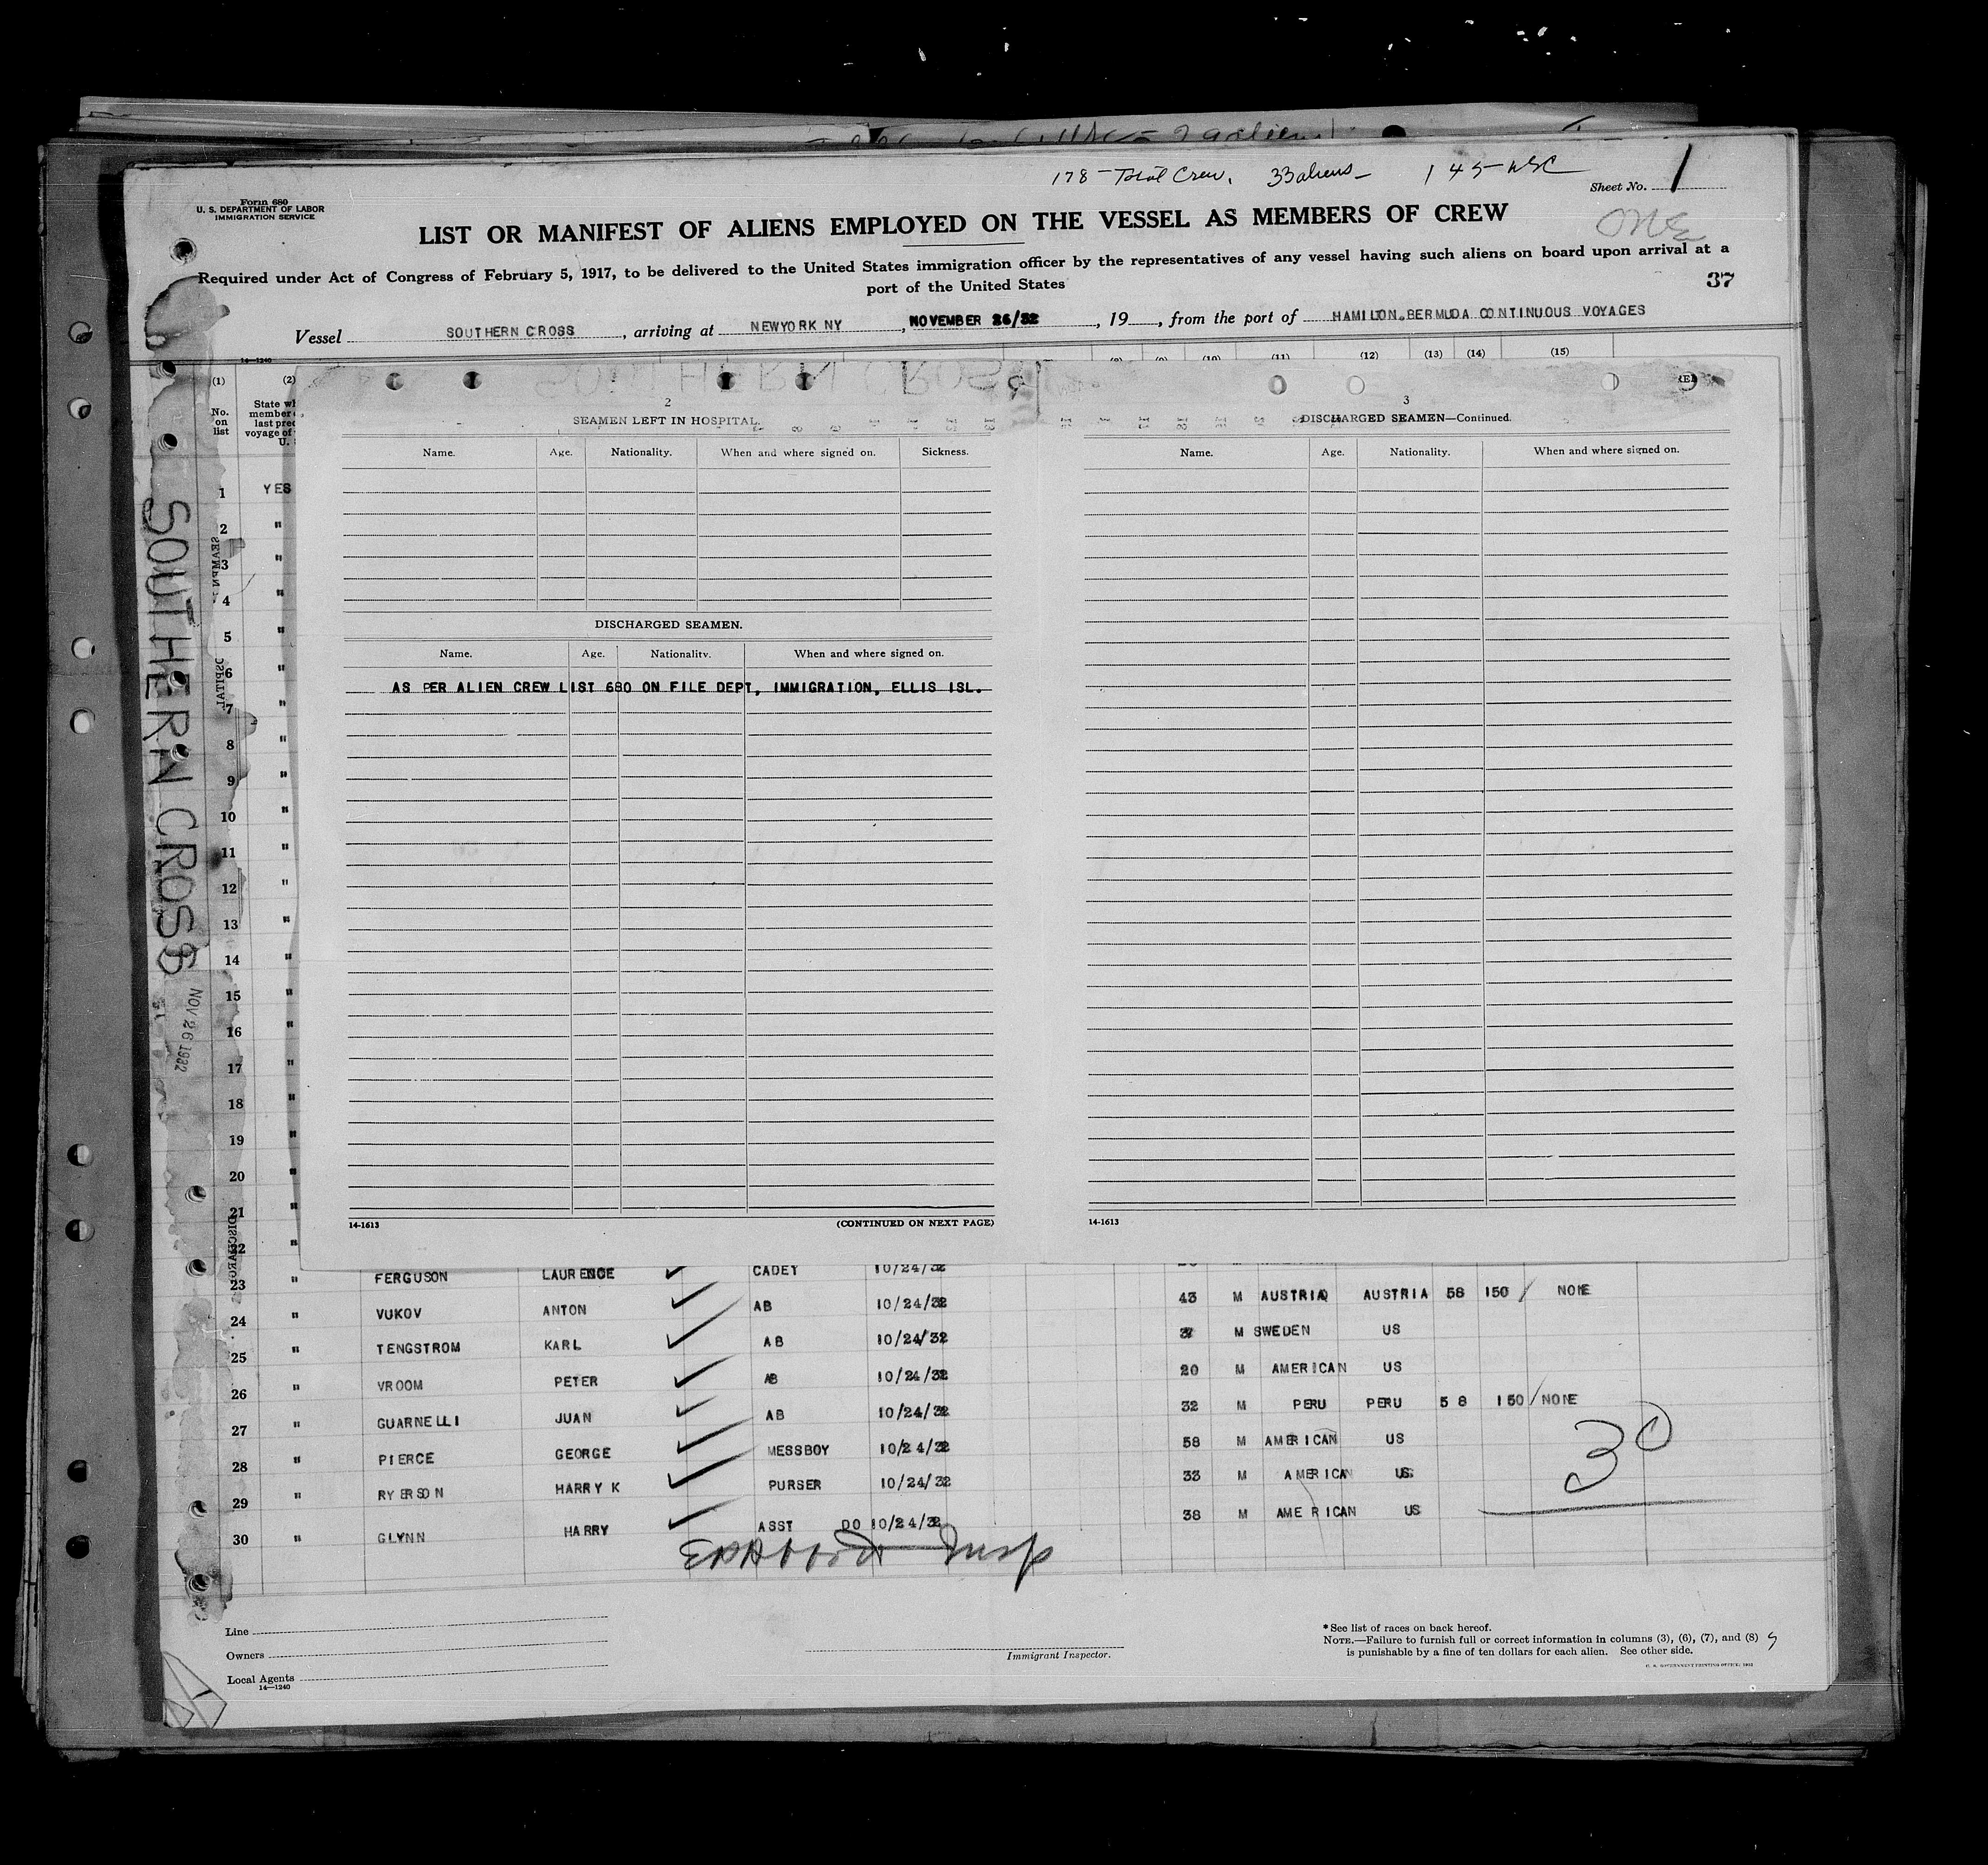 178 - Total Crew. 33 aliens - 145 - USC
Form 680
U. S. DEPARTMENT OF LABOR
IMMIGRATION SERVICE
Sheet No. 1
ONE
LIST OR MANIFEST OF ALIENS EMPLOYED ON THE VESSEL AS MEMBERS OF CREW
Required under Act of Congress of February 5, 1917, to be delivered to the United States immigration officer by the representatives of any vessel having such aliens on board upon arrival at a
port of the United States
37
Vessel SOUTHERN CROSS, arriving at NEWYORK NY, NOVEMBER 26/32, 19, from the port of HAMILTON.BERMUDA CONTINUOUS VOYAGES
14-1240
(1) (2) (10) (11) (12) (13) (14) (15)
No.
on
list
State wh
member
last prec
voyage of
U.
SOUTHERN CROSS
NOV 26 1932
2
SEAMEN LEFT IN HOSPITAL.
Name. Age. Nationality. When and where signed on. Sickness.
DISCHARGED SEAMEN.
Name. Age. Nationality. When and where signed on.
AS PER ALIEN CREW LIST 680 ON FILE DEPT, IMMIGRATION, ELLIS ISL.
14-1613 (CONTINUED ON NEXT PAGE)
3
DISCHARGED SEAMEN—Continued.
Name. Age. Nationality. When and where signed on.
14-1613
1 YES
2 "
3 "
4 "
5 "
6 "
7 "
8 "
9 "
10 "
11 "
12 "
13 "
14 "
15 "
16 "
17 "
18 "
19 "
20 "
21 "
22 "
23 " FERGUSON LAURENCE CADET 10/24/32
24 " VUKOV ANTON AB 10/24/32 43 M AUSTRIA AUSTRIA 58 150 / NONE
25 " TENGSTROM KARL AB 10/24/32 M SWEDEN US
26 " VROOM PETER AB 10/24/32 20 M AMERICAN US
27 " GUARNELLI JUAN AB 10/24/32 32 M PERU PERU 58 150 / NONE
28 " PIERCE GEORGE MESSBOY 10/24/32 58 M AMERICAN US
29 " RYERSON HARRY K PURSER 10/24/32 33 M AMERICAN US
30 " GLYNN HARRY ASST DO 10/24/32 38 M AMERICAN US
30
Line
Owners
Local Agents
14-1240
Immigrant Inspector.
*See list of races on back hereof.
NOTE.—Failure to furnish full or correct information in columns (3), (6), (7), and (8)
is punishable by a fine of ten dollars for each alien. See other side.